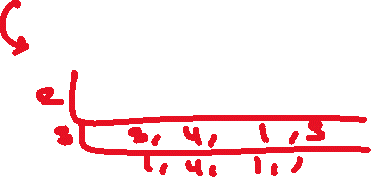 2
3 3, 4, 1, 3
1, 4, 1,,